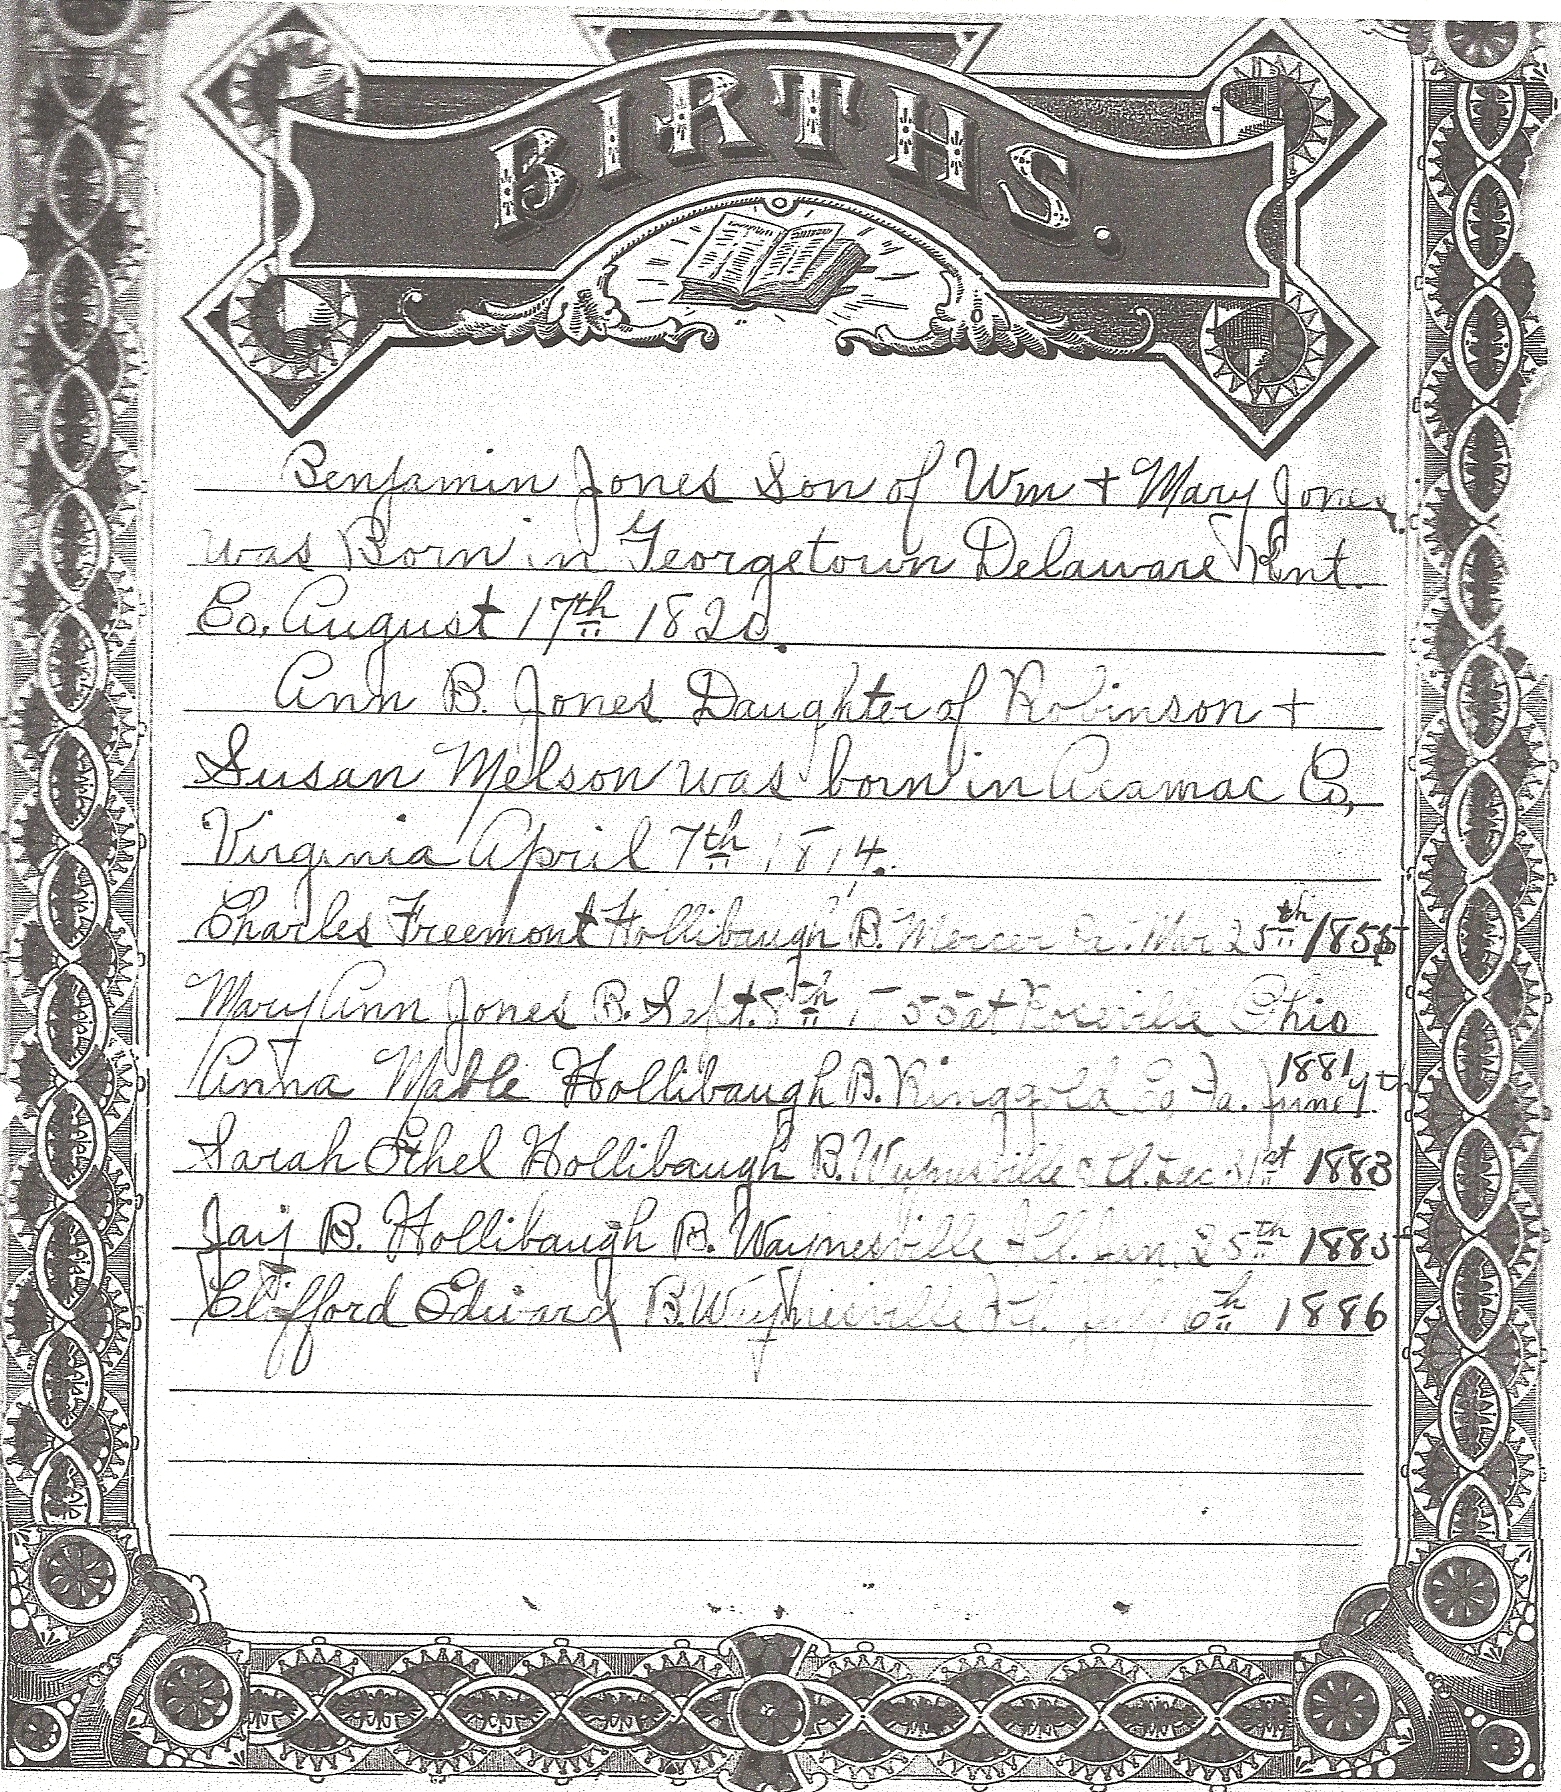 BIRTHS.
Benjamin Jones Son of Wm + Mary Jones
was Born in Georgetown Delaware Knt.
Co. August 17th 1820.
Ann B. Jones Daughter of Robinson +
Susan Melson was born in Acamac Co,
Virginia April 7th 1814.
Charles Freemont Hollibaugh B. Mercer Mar 25th 1855
Mary Ann Jones B. Sept. 8th 55 at Roseville Ohio
Anna Mable Hollibaugh B. Ringgold Co Ia. June 1881
Sarah Ethel Hollibaugh B. Waynesville Ill. Dec 31st 1883
Jay B. Hollibaugh B. Waynesville Ill. 25th 1885
Clifford Edward B. Waynesville Ill. July 6th 1886